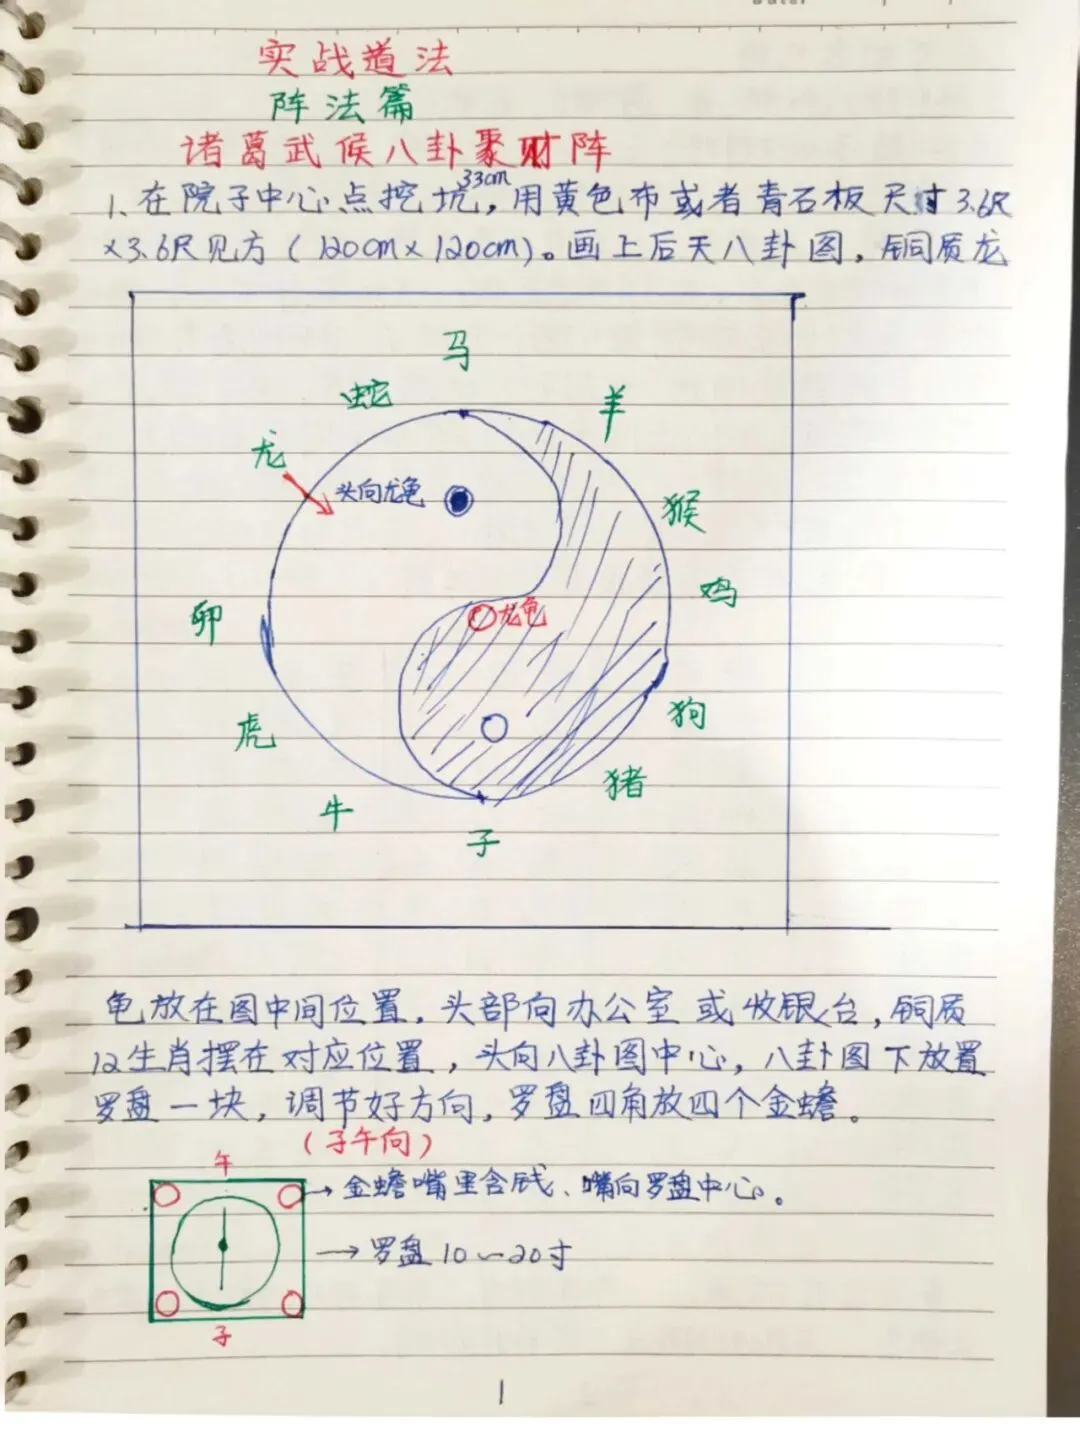 实战道法
阵法篇
诸葛武候八卦聚财阵
33cm
1、在院子中心点挖坑,用黄色布或者青石板尺寸3.6尺
×3.6尺见方(120cm×120cm)。画上后天八卦图,铜质龙
马
蛇
羊
龙
头向龙龟
猴
鸡
卯
龙龟
狗
虎
猪
牛
子
龟放在图中间位置,头部向办公室或收银台,铜质
12生肖摆在对应位置,头向八卦图中心,八卦图下放置
罗盘一块,调节好方向,罗盘四角放四个金蟾。
(子午向)
午
→金蟾嘴里含钱、嘴向罗盘中心。
→罗盘10~20寸
子
1